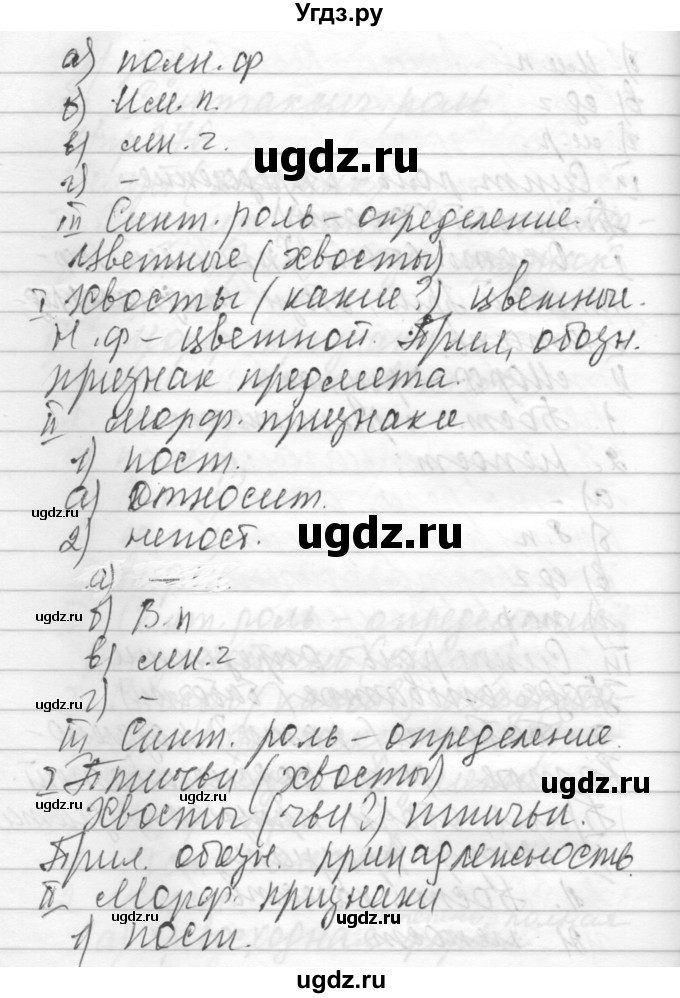 Угдз.ру
а) полн. ф
б) Им. п.
в) мн. ч.
ugdz.ru
г) –
III Синт. роль – определение.
Цветные (хвосты)
I Хвосты (какие?) цветные.
Н.ф – цветной. Прил, обозн.
признак предмета.
II Морф. признаки
1) пост.
а) Относит.
ugdz.ru
2) непост.
ugdz.ru
ugdz.ru
а) –
б) В.п
ugdz.ru
в) мн. ч
г) –
ugdz.ru
III Синт. роль – определение.
I Птичьи (хвосты)
ugdz.ru
ugdz.ru
Хвосты (чьи?) птичьи.
Прил. обозн. принадлежность
II Морф. признаки
ugdz.ru
ugdz.ru
1) пост.
ugdz.ru
ugdz.ru